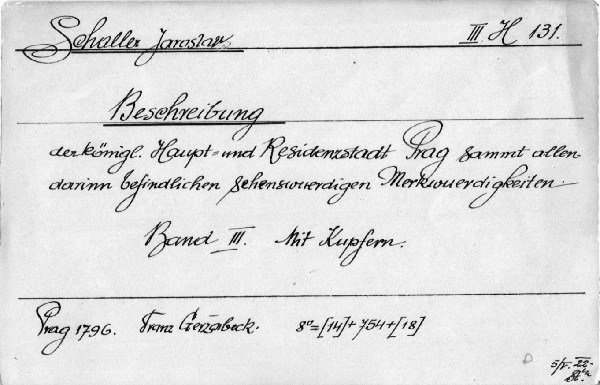 Schaller Jaroslav. III. H 131.
Beschreibung
der königl. Haupt- und Residenzstadt Prag sammt allen
darinn befindlichen sehenswuerdigen Merkwuerdigkeiten.
Band III. Mit Kupfern.
Prag 1796. Franz Geržabeck. 8°=[14]+754+[18]
5/V. 22.